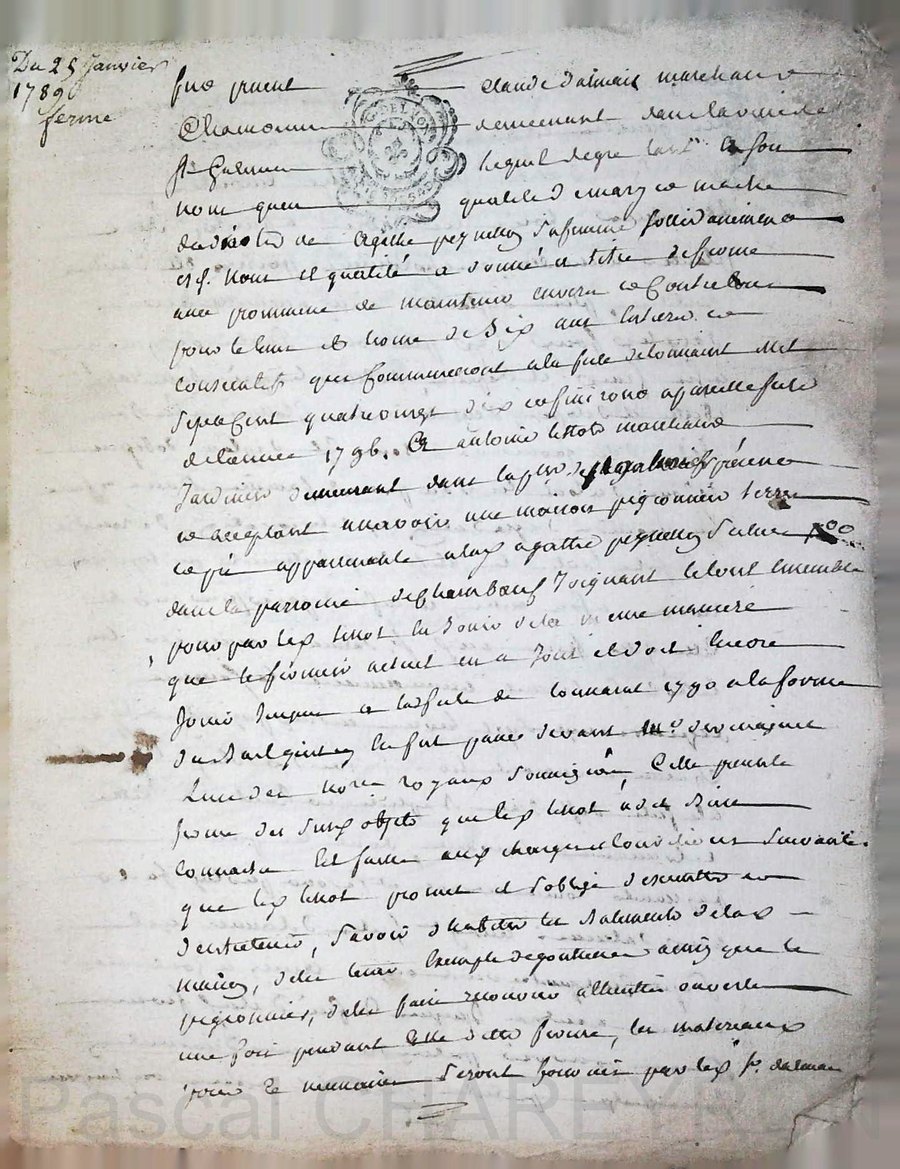 Du 25 Janvier
1789
ferme
fut present Claude dalmais marchand
Chamoiseur demeurant dans la ville de
St Galmier lequel de gré tant en son
nom qu'en qualité de mary et maitre
des droits de agathe peyneys sa femme solidairement
esd. nom et qualité a donné a titre de ferme
avec promesse de maintenir envers et Contre tous
pour le tems et terme de six ans entiers et
consecutifs qui Commenceront a la fete de toussaint Mil
sept Cent quatrevingt dix et finiront a pareille fete
de l'année 1796. a antoine thiot marchand
Jardinier demeurant dans la de St galmier présent
et acceptant a savoir une maison pigeonnier terre
et pré appartenants a lad agathe peyneys situés
dans la parroisse de Chambœuf Joignant le tout Ensemble
pour par led thiot en Jouir de la meme maniere
que le fermier actuel en a Joui et doit Encore
Jouir Jusques a lad fete de toussaint 1790 a la forme
du Bail qui en fut passé devant Me
L'un des Nores royaux Cette presente
ferme des susd objets que led thiot a dit Bien
Connaitre Est faite aux charges et Conditions suivantes.
que led thiot promet et s'oblige d'executer et
d'entretenir, savoir d'habiter les Batiments de lad
maison, de les tenir Exempts de goutieres ainsi que le
pigeonnier, de les faire recouvrir a ouverte
une fois pendant cette ferme, les materiaux
pour ce necessaires seront fournis par led sr. dalmais
Pascal CHAREYRON